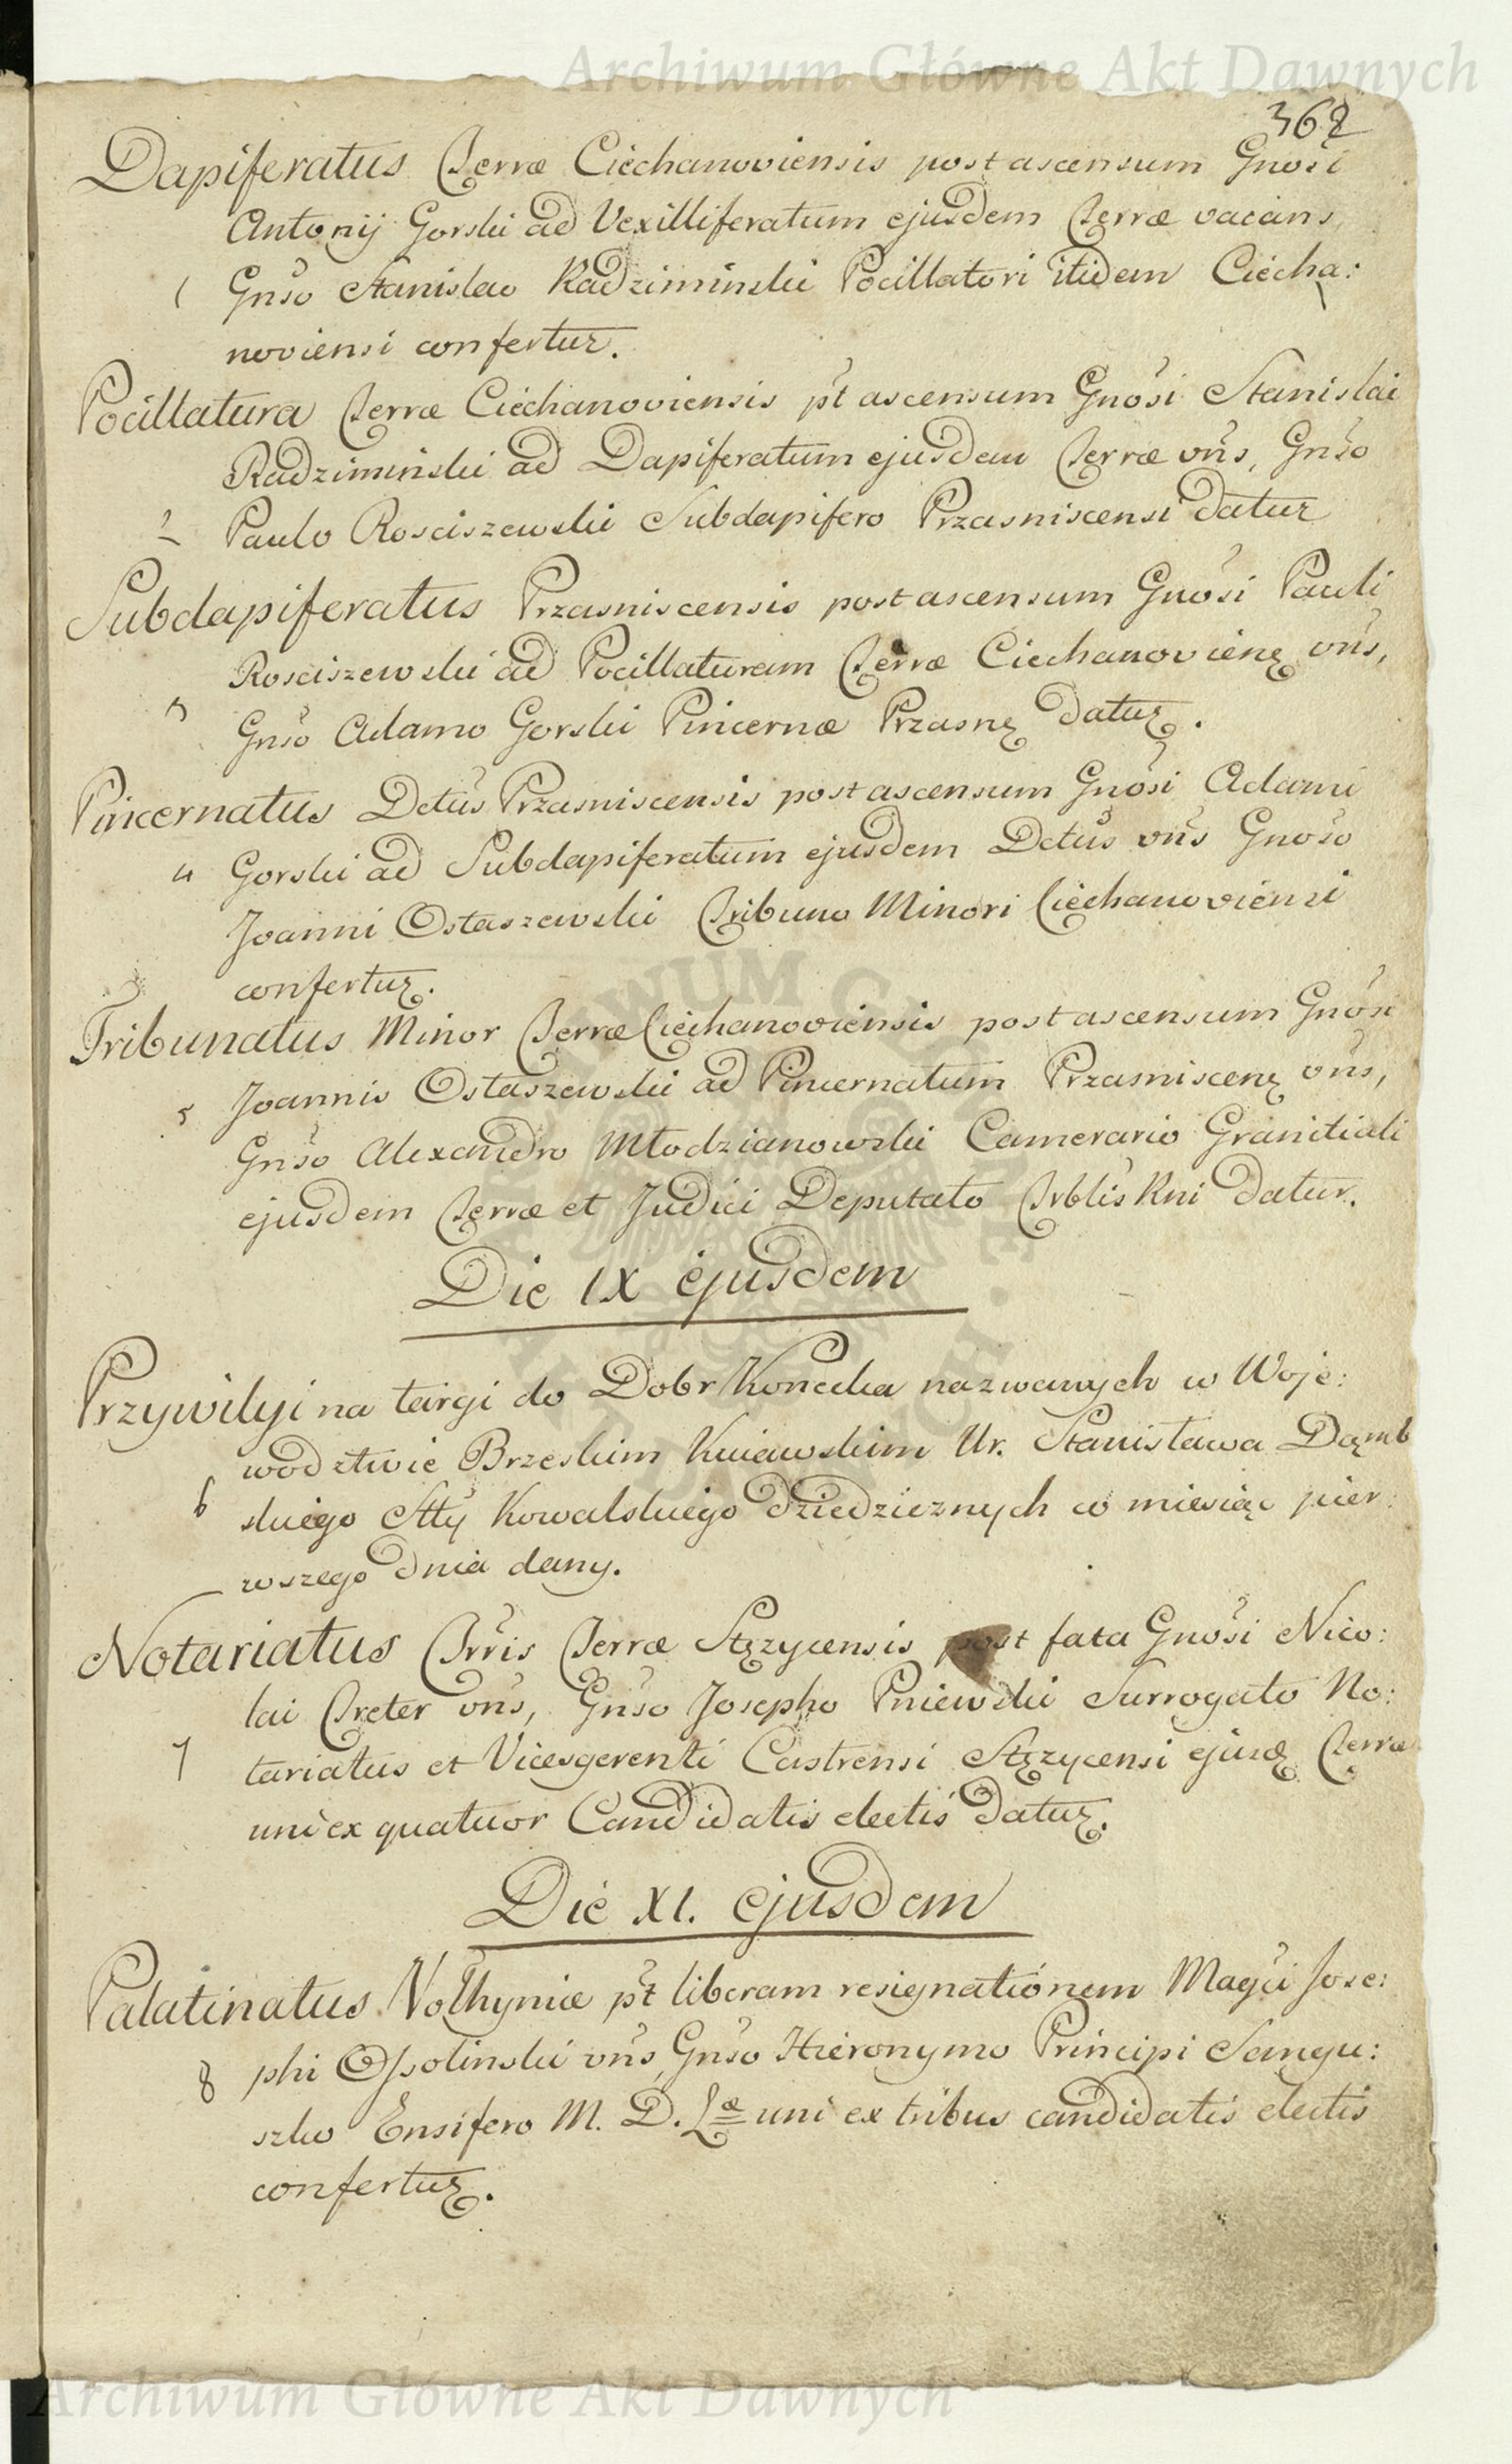 Archiwum Główne Akt Dawnych
362
Dapiferatus Terræ Ciechanoviensis post ascensum Gnosi
Antonij Gorski ad Vexilliferatum ejusdem Terræ vacans,
1 Gnso Stanislao Radziminski Pocillatori itidem Ciecha:
noviensi confertur.
Pocillatura Terræ Ciechanoviensis pt ascensum Gnosi Stanislai
Radziminski ad Dapiferatum ejusdem Terræ vns, Gnso
2 Paulo Rosciszewski Subdapifero Przasniscensi datur
Subdapiferatus Przasniscensis post ascensum Gnosi Pauli
Rosciszewski ad Pocillaturam Terræ Ciechanovienę vns,
3 Gnso Adamo Gorski Pincernæ Przasnę datur.
Pincernatus Dctus Przasniscensis post ascensum Gnosi Adami
4 Gorski ad Subdapiferatum ejusdem Dctus vns Gnoso
Joanni Ostaszewski Tribuno Minori Ciechanoviensi
confertur.
Tribunatus Minor Terræ Ciechanoviensis post ascensum Gnosi
5 Joannis Ostaszewski ad Pincernatum Przasniscenę vns,
Gnso Alexandro Młodzianowski Camerario Granitiali
ejusdem Terræ et Judici Deputato Trblis Rni datur.
Die IX ejusdem
Przywilyi na targi do Dobr Konecka nazwanych w Woje:
wodztwie Brzeskim Kuiawskim Ur. Stanisława Dąmb
6 skiego Stty Kowalskiego dziedzicznych co miesiąc pier:
wszego dnia dany.
Notariatus Trris Terræ Stęzycensis post fata Gnosi Nico:
lai Treter vns, Gnso Josepho Pniewski Surrogato No:
7 tariatus et Vicesgerenti Castrensi Stęzycensi ejusd Terræ
uni ex quatuor Candidatis electis datur.
Die XI. ejusdem
Palatinatus Volhyniæ pt liberam resignationem Magci Jose:
8 phi Ossolinski vns, Gnso Hieronymo Principi Sangu:
szko Ensifero M. D. Læ uni ex tribus candidatis electis
confertur.
Archiwum Główne Akt Dawnych